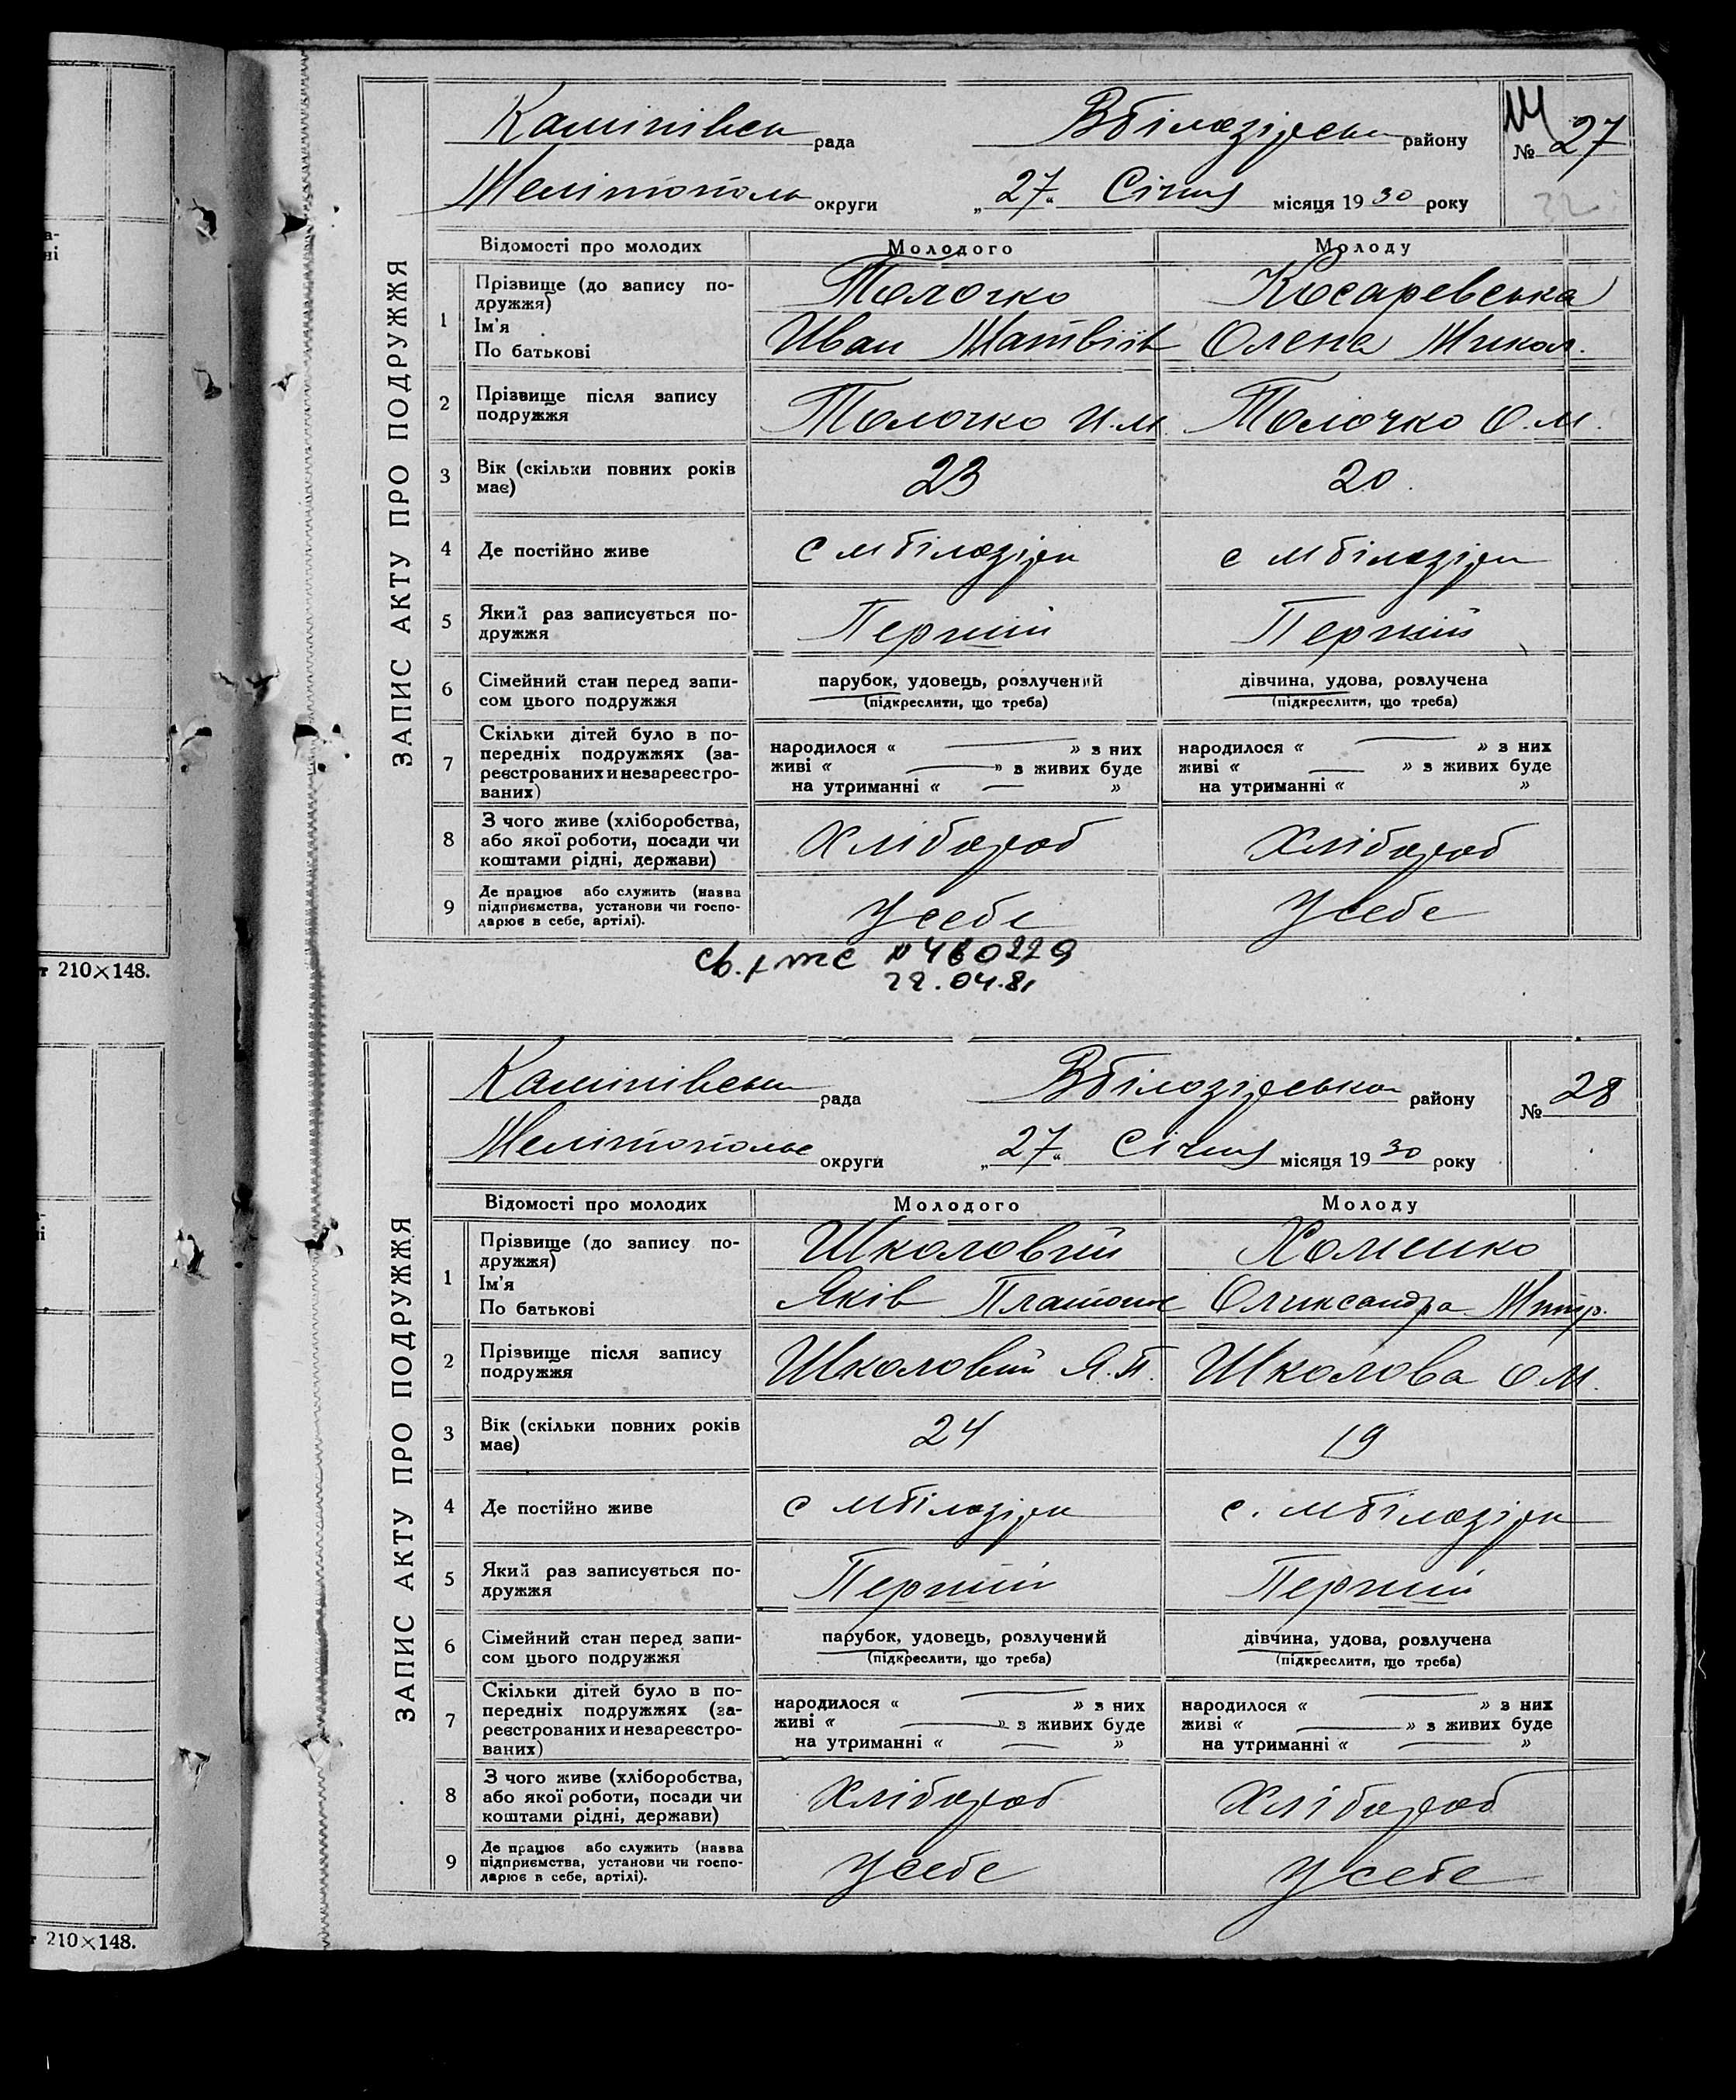 Камінівськ рада Вбілозірськ району № 27
Мелітополь округи „27“ Січня місяця 1930 року
ЗАПИС АКТУ ПРО ПОДРУЖЖЯ
Відомості про молодих Молодого Молоду
1 Прізвище (до запису по-
дружжя) Толочко Косаревська
Ім'я
По батькові Иван Матвіів Олена Микол.
2 Прізвище після запису
подружжя Толочко И.М. Толочко О.М.
3 Вік (скільки повних років
має) 23 20
4 Де постійно живе с мбілозірка с мбілозірка
5 Який раз записується по-
дружжя Перший Перший
6 Сімейний стан перед запи-
сом цього подружжя парубок, удовець, розлучений дівчина, удова, розлучена
(підкреслити, що треба) (підкреслити, що треба)
7 Скільки дітей було в по-
передніх подружжях (за-
реєстрованих и незареєстро-
ваних)
народилося « — » з них народилося « — » з них
живі « — » з живих буде живі « — » з живих буде
на утриманні « — » на утриманні « »
8 З чого живе (хліборобства,
або якої роботи, посади чи
коштами рідні, держави) Хлібороб Хлібороб
9 Де працює або служить (назва
підприємства, установи чи госпо-
дарює в себе, артілі). У себе У себе
22.04.81
Камінівськ рада Вбілозірська району № 28
Мелітополье округи „27“ Січня місяця 1930 року
ЗАПИС АКТУ ПРО ПОДРУЖЖЯ
Відомості про молодих Молодого Молоду
1 Прізвище (до запису по-
дружжя) Школовий Хоменко
Ім'я
По батькові Яків Платонов Олександра Митр.
2 Прізвище після запису
подружжя Школовий Я.П. Школова О.М.
3 Вік (скільки повних років
має) 24 19
4 Де постійно живе с мбілозірка с. мбілозірка
5 Який раз записується по-
дружжя Перший Перший
6 Сімейний стан перед запи-
сом цього подружжя парубок, удовець, розлучений дівчина, удова, розлучена
(підкреслити, що треба) (підкреслити, що треба)
7 Скільки дітей було в по-
передніх подружжях (за-
реєстрованих и незареєстро-
ваних)
народилося « — » з них народилося « — » з них
живі « — » з живих буде живі « — » з живих буде
на утриманні « — » на утриманні « — »
8 З чого живе (хліборобства,
або якої роботи, посади чи
коштами рідні, держави) Хлібороб Хлібороб
9 Де працює або служить (назва
підприємства, установи чи госпо-
дарює в себе, артілі). У себе У себе
т 210×148.
т 210×148.